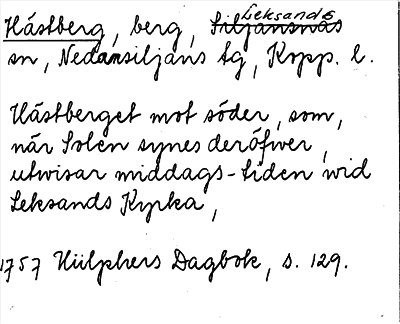 Hästberg, berg, Siljansnäs Leksands
sn, Nedansiljans tg, Kopp. l.
Hästberget mot söder, som,
när Solen synes deröfwer,
utwisar middags-tiden wid
Leksands Kyrka,
1757 Hülphers Dagbok, s. 129.